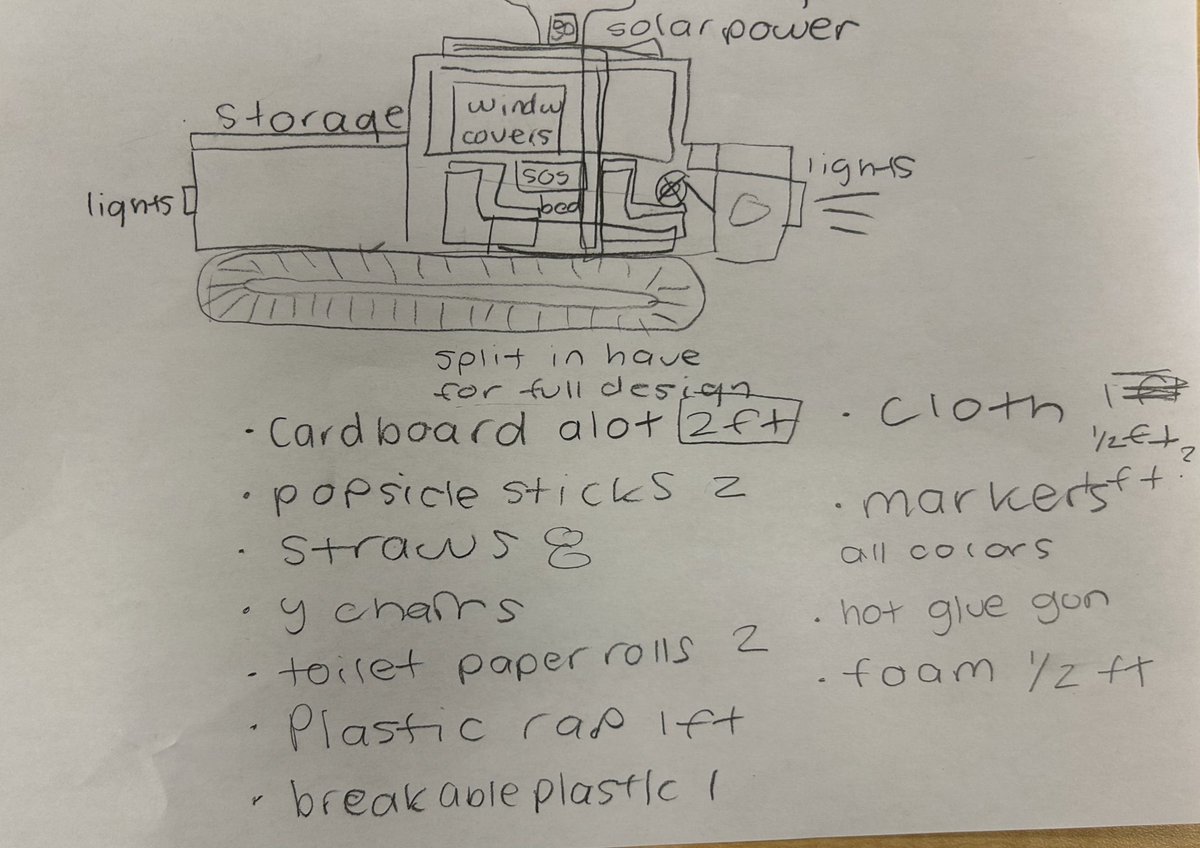 solar power
Storage
windw
covers
lights
SOS
bed
lights
split in have
for full design
• Cardboard alot 2ft
• popsicle sticks 2
• Straws 8
• y chairs
• toilet paper rolls 2
• Plastic rap 1ft
• breakable plastic 1
• cloth 1
1/2 ft
• markers ft
all colors
• hot glue gun
• foam 1/2 ft